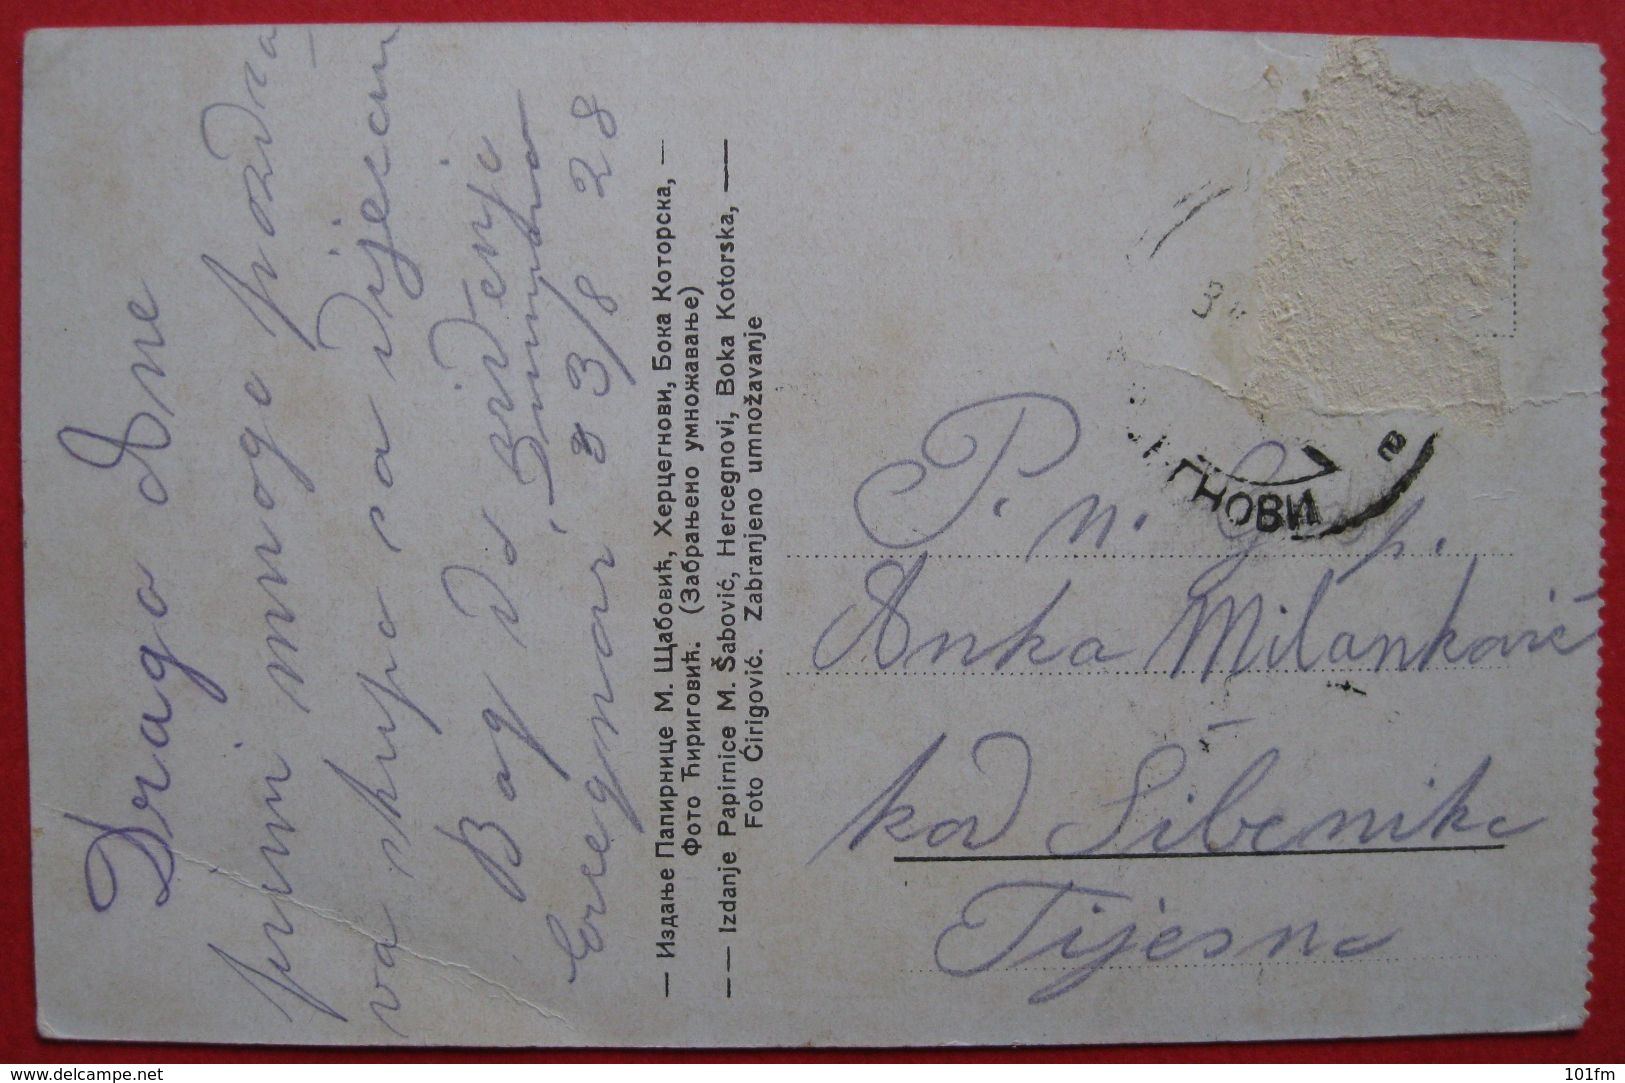 Draga Ane
primi mnogo pozdra
va skupa sa djecom
Bog Do viđenje
3/8 28
— Издање Папирнице М. Щабовић, Херцегнови, Бока Которска, —
Фото Ћириговић. (Забрањено умножавање)
—— Izdanje Papirnice M. Šabović, Hercegnovi, Boka Kotorska, ——
Foto Ćirigović. Zabranjeno umnožavanje
ГНОВИ
P. n. G. p.
Anka Milanković
kod Šibenika
Tijesno
www.delcampe.net
101fm